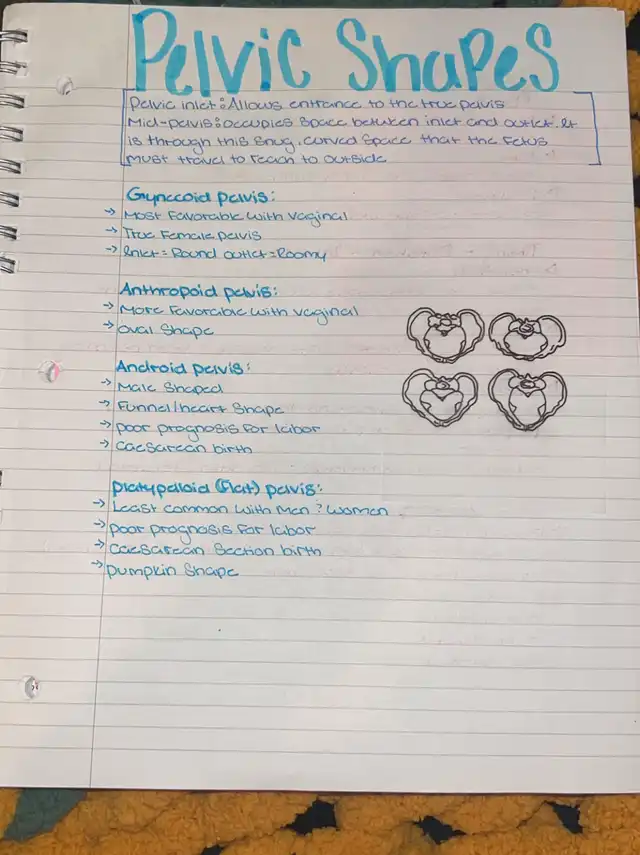 Pelvic Shapes
Pelvic inlet: Allows entrance to the true pelvis
Mid-pelvis: occupies space between inlet and outlet. It
is through this snug, curved space that the fetus
must travel to reach to outside
Gynecoid pelvis:
→ Most favorable with vaginal
→ True female pelvis
→ Inlet = Round outlet = Roomy
Anthropoid pelvis:
→ More favorable with vaginal
→ oval shape
Android pelvis:
→ Male shaped
→ Funnel/heart shape
→ poor prognosis for labor
→ caesarean birth
platypaloid (flat) pelvis:
→ Least common with men & women
→ poor prognosis for labor
→ caesarean section birth
→ pumpkin shape